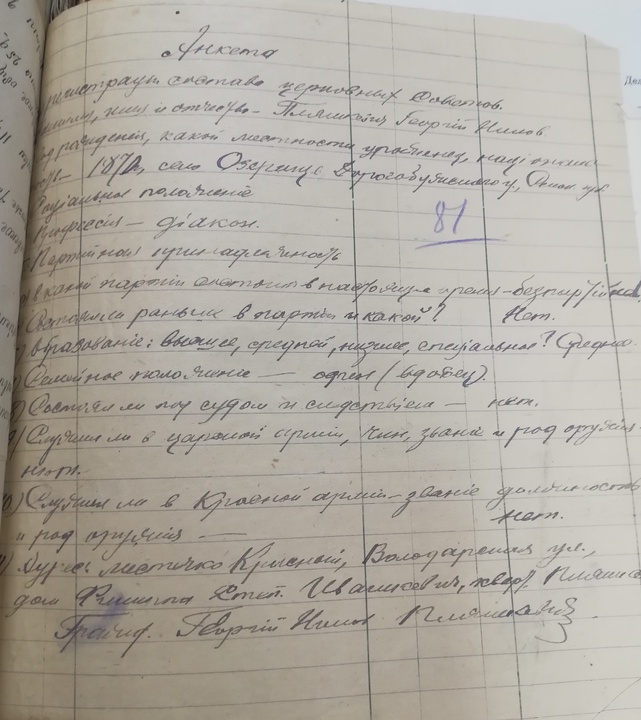 Анкета
регистрацiи состава церковных Советов.
фамилiя, имя и отчество — Пляшкевич Георгiй Нилов
год рожденiя, какой местности уроженец, нацiональ-
ность — 187 , село Озерище Дорогобужского у, Смол губ
Соцiальное положенiе
81
Профессiя — дiакон.
Партiйная принадлежность
в какой партiи состоит в настоящее время — безпартiйный
Состоялся раньше в партiи и какой? Нет.
Образованiе: высшее, средней, низшее, спецiальное? Средне
Семейное положенiе — один (вдовец).
Состоял ли под судом и следствiем — нет.
9) Служил ли в царской армiи, чин, званiе и род оружiя —
нет.
10) Служил ли в Красной армiи — званiе должность
и род оружiя — нет.
11) Адрес местечко Красный, Володарская ул.,
дом Степ. Ивашкевич, кварт. Пляшке
Гражд. Георгiй Нилов Пляшкевич